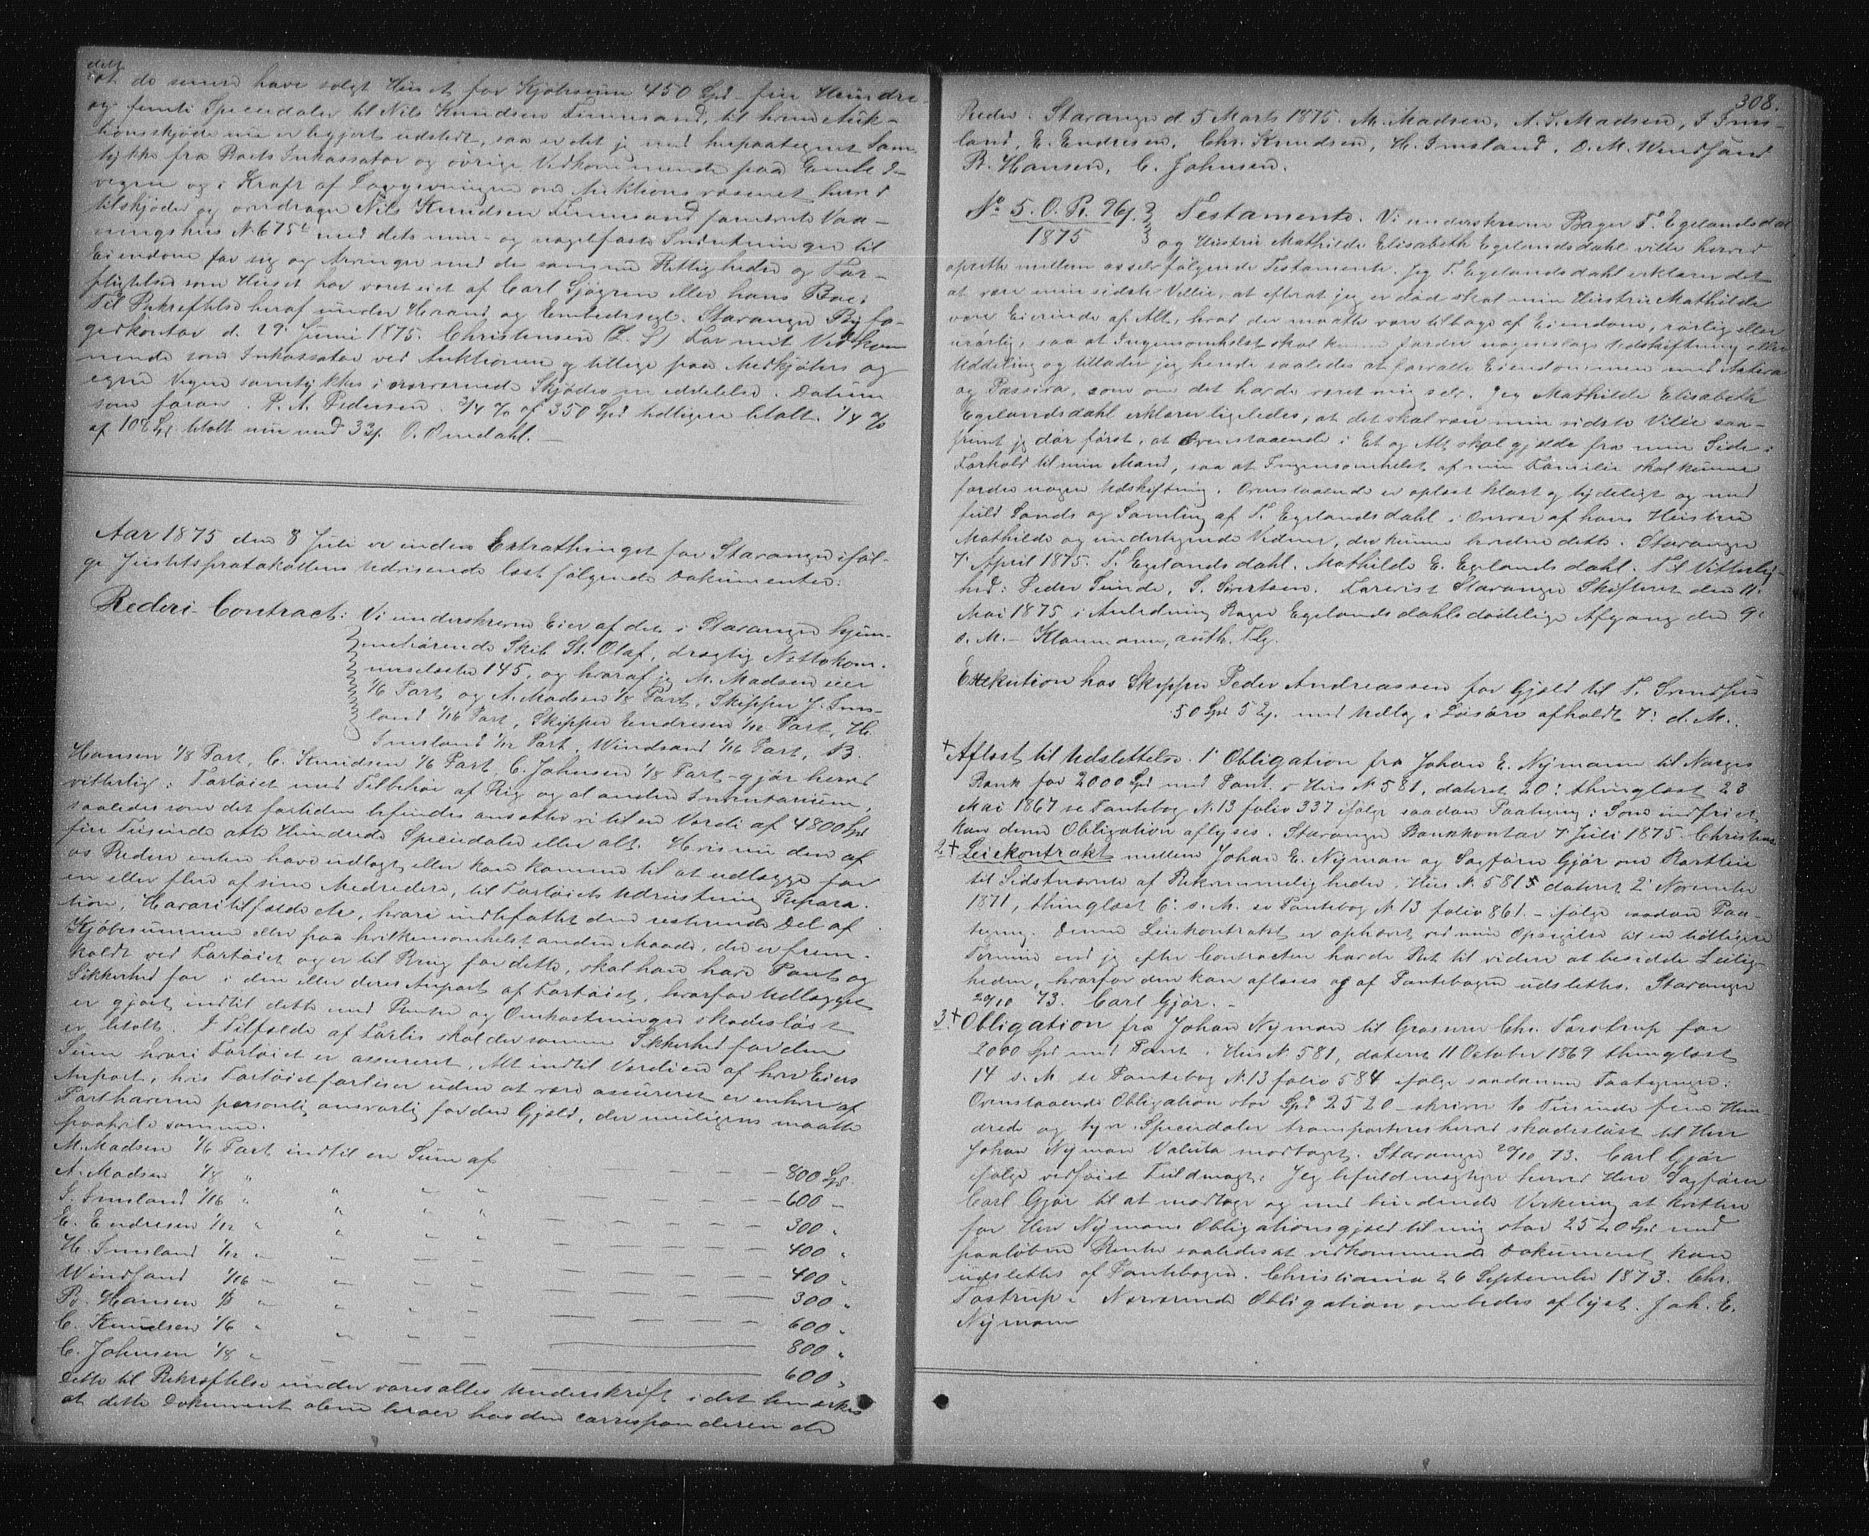 at de senere have solgt Huset for Kjøbesum 450 Spd fire Hundre-
og femti Speciedaler til Nils Knudsen Finnesand, til hvem Auk-
tionsskjøde nu er begjært udstedt, saa er det jeg med herpaategnet Sam-
tykke fra Boets Inkassator og øvrige Vedkommende paa Embeds-
vegne og i Kraft af Lovgivningen om Auktionsvæsenet herved
tilskjøder og overdrager Nils Knudsen Finnesand fornævnte Vaa-
ningshus N 675 med dets mur- og nagelfaste Indretninger til
Eiendom for sig og Arvinger med de samme Rettigheder og For-
pligtelser som Huset har været eiet af Carl Sjøgren eller hans Bo.
Til Bekræftelse heraf under Haand og Embedssegl. Stavanger Byfo-
gedkontor d. 29 Juni 1875. Christensen (L. S.) For mit Vedkom-
mende som Inkassator ved Auktionen og tillige paa Medkjøbers og
egne Vegne samtykkes i nærværende Skjødes meddelelse. Datum
som foran. P. A. Pedersen. ¾ % af 350 Spd tidligere betalt. ¼ %
af 100 Spd betalt nu med 33 s. O. Omdahl.
Aar 1875 den 8 Juli er inden Extrathinget for Stavanger iføl-
ge Justitsprotokollens Udvisende læst følgende Dokumenter:
Rederi-Contract: Vi underskrevne Eier af det i Stavanger hjem-
mehørende Skib St. Olaf, drægtig Nettokom-
merselæster 145, og hvoraf jeg M. Madsen eier
1/6 Part og A. Madsen 1/8 Part, Skipper J. Ims-
land 1/16 Part, Skipper Endresen 1/12 Part, H.
Imsland 1/12 Part, Windsand 1/16 Part, B
Hansen 1/8 Part, C. Knudsen 1/6 Part C. Johnsen 1/8 Part – gjør herved
vitterlig: Fartøiet med Tilbehør af Rig og al anden Inventarium,
saaledes som det for tiden befindes ansætter vi til en Verdi af 4800 Spd
fire Tusinde otte Hundrede Speciedaler eller alt. Hvis nu den af
os Redere enten have udlagt eller kan komme til at udlægge for
en eller flere af sine Medredere, til Fartøiets Udrustning Repara-
tion, Havaritilfælde etc, hvori indbefattet den resterende Del af
Kjøbesummen eller paa hvilkensomhelst anden Maade, der er frem-
holdt ved Fartøiet og er til Brug for dette, skal han have Pant og
Sikkerhed for i den eller deres Anpart af Fartøiet, hvorfor Udlægget
er gjort indtil dette med Renter og Omkostninger skadesløst
er betalt. I Tilfælde af Forlis skal der samme Sikkerhed for den
Sum hvori Fartøiet er assureret, Alt indtil Verdien af hver Eiers
Anpart, hvis Fartøiet forliser uden at være assureret er enhver af
Parthaverne personlig ansvarlig for den Gjæld, der muligens maatte
paahvile samme.
M. Madsen 1/6 Part indtil en Sum af — — — 800 Spd.
A. Madsen 1/8 „ „ „ „ — — — 600 —
J. Imsland 1/16 „ „ „ „ — — — 300 „
E. Endresen 1/12 „ „ „ „ — — — 400 „
H. Imsland 1/12 „ „ „ „ — — — 400 „
Windsand 1/16 „ „ „ „ — — — 300 „
B. Hansen 1/8 „ „ „ „ — — — 600 „
C. Knudsen 1/6 „ „ „ „ — — — 800 „
C. Johnsen 1/8 „ — — — — 600 „
Dette til Bekræftelse under vores alles Underskrift i det bemærkes
at dette Dokument alene beror hos den corresponderende
308.
Reder. Stavanger d 5 Marts 1875. M. Madsen, A. S. Madsen, J Ims-
land, E. Endresen, Chr. Knudsen, H. Imsland, O. M. Windsand
B. Hansen, C. Johnsen.
No 5. O. Pr. 96 s. Testamente. Vi underskrevne Bager T. Egelandsdal
1875 og Hustru Mathilde Elisabeth Egelandsdahl ville herved
oprette mellem os selv følgende Testamente. Jeg T. Egelandsdahl erklærer det
at være min sidste Villie, at efterat jeg er død skal min Hustru Mathilde
være Eierinde af Alt, hvad der maatte være tilbage af Eiendom, rørlig eller
urørlig, saa at Ingensomhelst skal kunne fordre nogenslags Udskiftning eller
Uddeling og tillader jeg hende saaledes at forvalte Eiendommen med Activa
og Passiva, som om det havde været mig selv. Jeg Mathilde Elisabeth
Egelandsdahl erklærer ligeledes, at det skal være min sidste Vilie saa-
fremt jeg dør først, at Ovenstaaende i Et og Alt skal gjælde fra min Side i
Forhold til min Mand, saa at Ingensomhelst af min Familie skal kunne
fordre nogen Udskiftning. Ovenstaaende er oplæst klart og tydeligt og med
fuld Sands og Samling af T. Egelandsdahl i Overvær af hans Hustru
Mathilde og undertegnede Vidner, der kunne bevidne dette. Stavanger
7 April 1875. T. Egelandsdahl. Mathilde E. Egelandsdahl. Til Vitterlig-
hed: Peder Tunde, S. Sivertsen. Forevist Stavanger Skifteret den 11.
Mai 1875 i Anledning Bager Egelandsdahls dødelige Afgang den 9:
s. M. – Klaumann, auth. Flg.
Exekution hos Skipper Peder Andreassen for Gjæld til T. Svendsen
50 Spd 52 s. med Udlæg i Løsøre afholdt 7: d. M.
+ Aflæst til Udslettelse. 1 Obligation fra Johan E. Nyman til Norges
Bank for 2000 Spd med Pant i Hus N 581, dateret 20: thinglæst 23
Mai 1867 se Pantebog N 13 folio 337 ifølge saadan Paategning: Som indfriet,
kan denne Obligation aflyses. Stavanger Bankkontor 7 Juli 1875. Christensen
2 + Leiekontrakt mellem Johan E. Nyman og Sagfører Gjør om Bortleie
til Sidstnævnte af Bekvemmeligheder i Hus N. 581 dateret 2 November
1871, thinglæst 6. s. M. se Pantebog N 13 folio 861. – ifølge saadan Paa-
tegning. Denne Leiekontrakt er ophævet ved min Opsigelse til en tidligere
Termin end jeg efter Contracten havde Ret til videre at besidde Leilig-
heden, hvorfor den kan aflæses og af Pantebogen udslettes. Stavanger
20/10 73. Carl Gjør. –
3. + Obligation fra Johan Nyman til Grosserer Chr. Tostrup for
2000 Spd med Pant i Hus N 581, dateret 11 October 1869 thinglæst
14 s. M. se Pantebog N. 13 folio 584 ifølge saadanne Paategninger:
Ovenstaaende Obligation stor Spd 2520 – skriver to Tusinde fem Hun-
drede og tyve Speciedaler transporteres herved skadesløst til Herr
Johan Nyman Valuta modtaget. Stavanger 20/10 73. Carl Gjør
ifølge vedføiet Fuldmagt: Jeg befuldmægtiger herved Herr Sagfører
Carl Gjør til at modtage og med bindende Virkning at kvittere
for Herr Nymans Obligationsgjæld til mig stor 2520 Spd med
paaløben Renter saaledes at vedkommende Dokument kan
udslettes af Pantebogen. Christiania 26 September 1873. Chr.
Tostrup. Nærværende Obligation ombedes aflyst. Joh. E.
Nyman